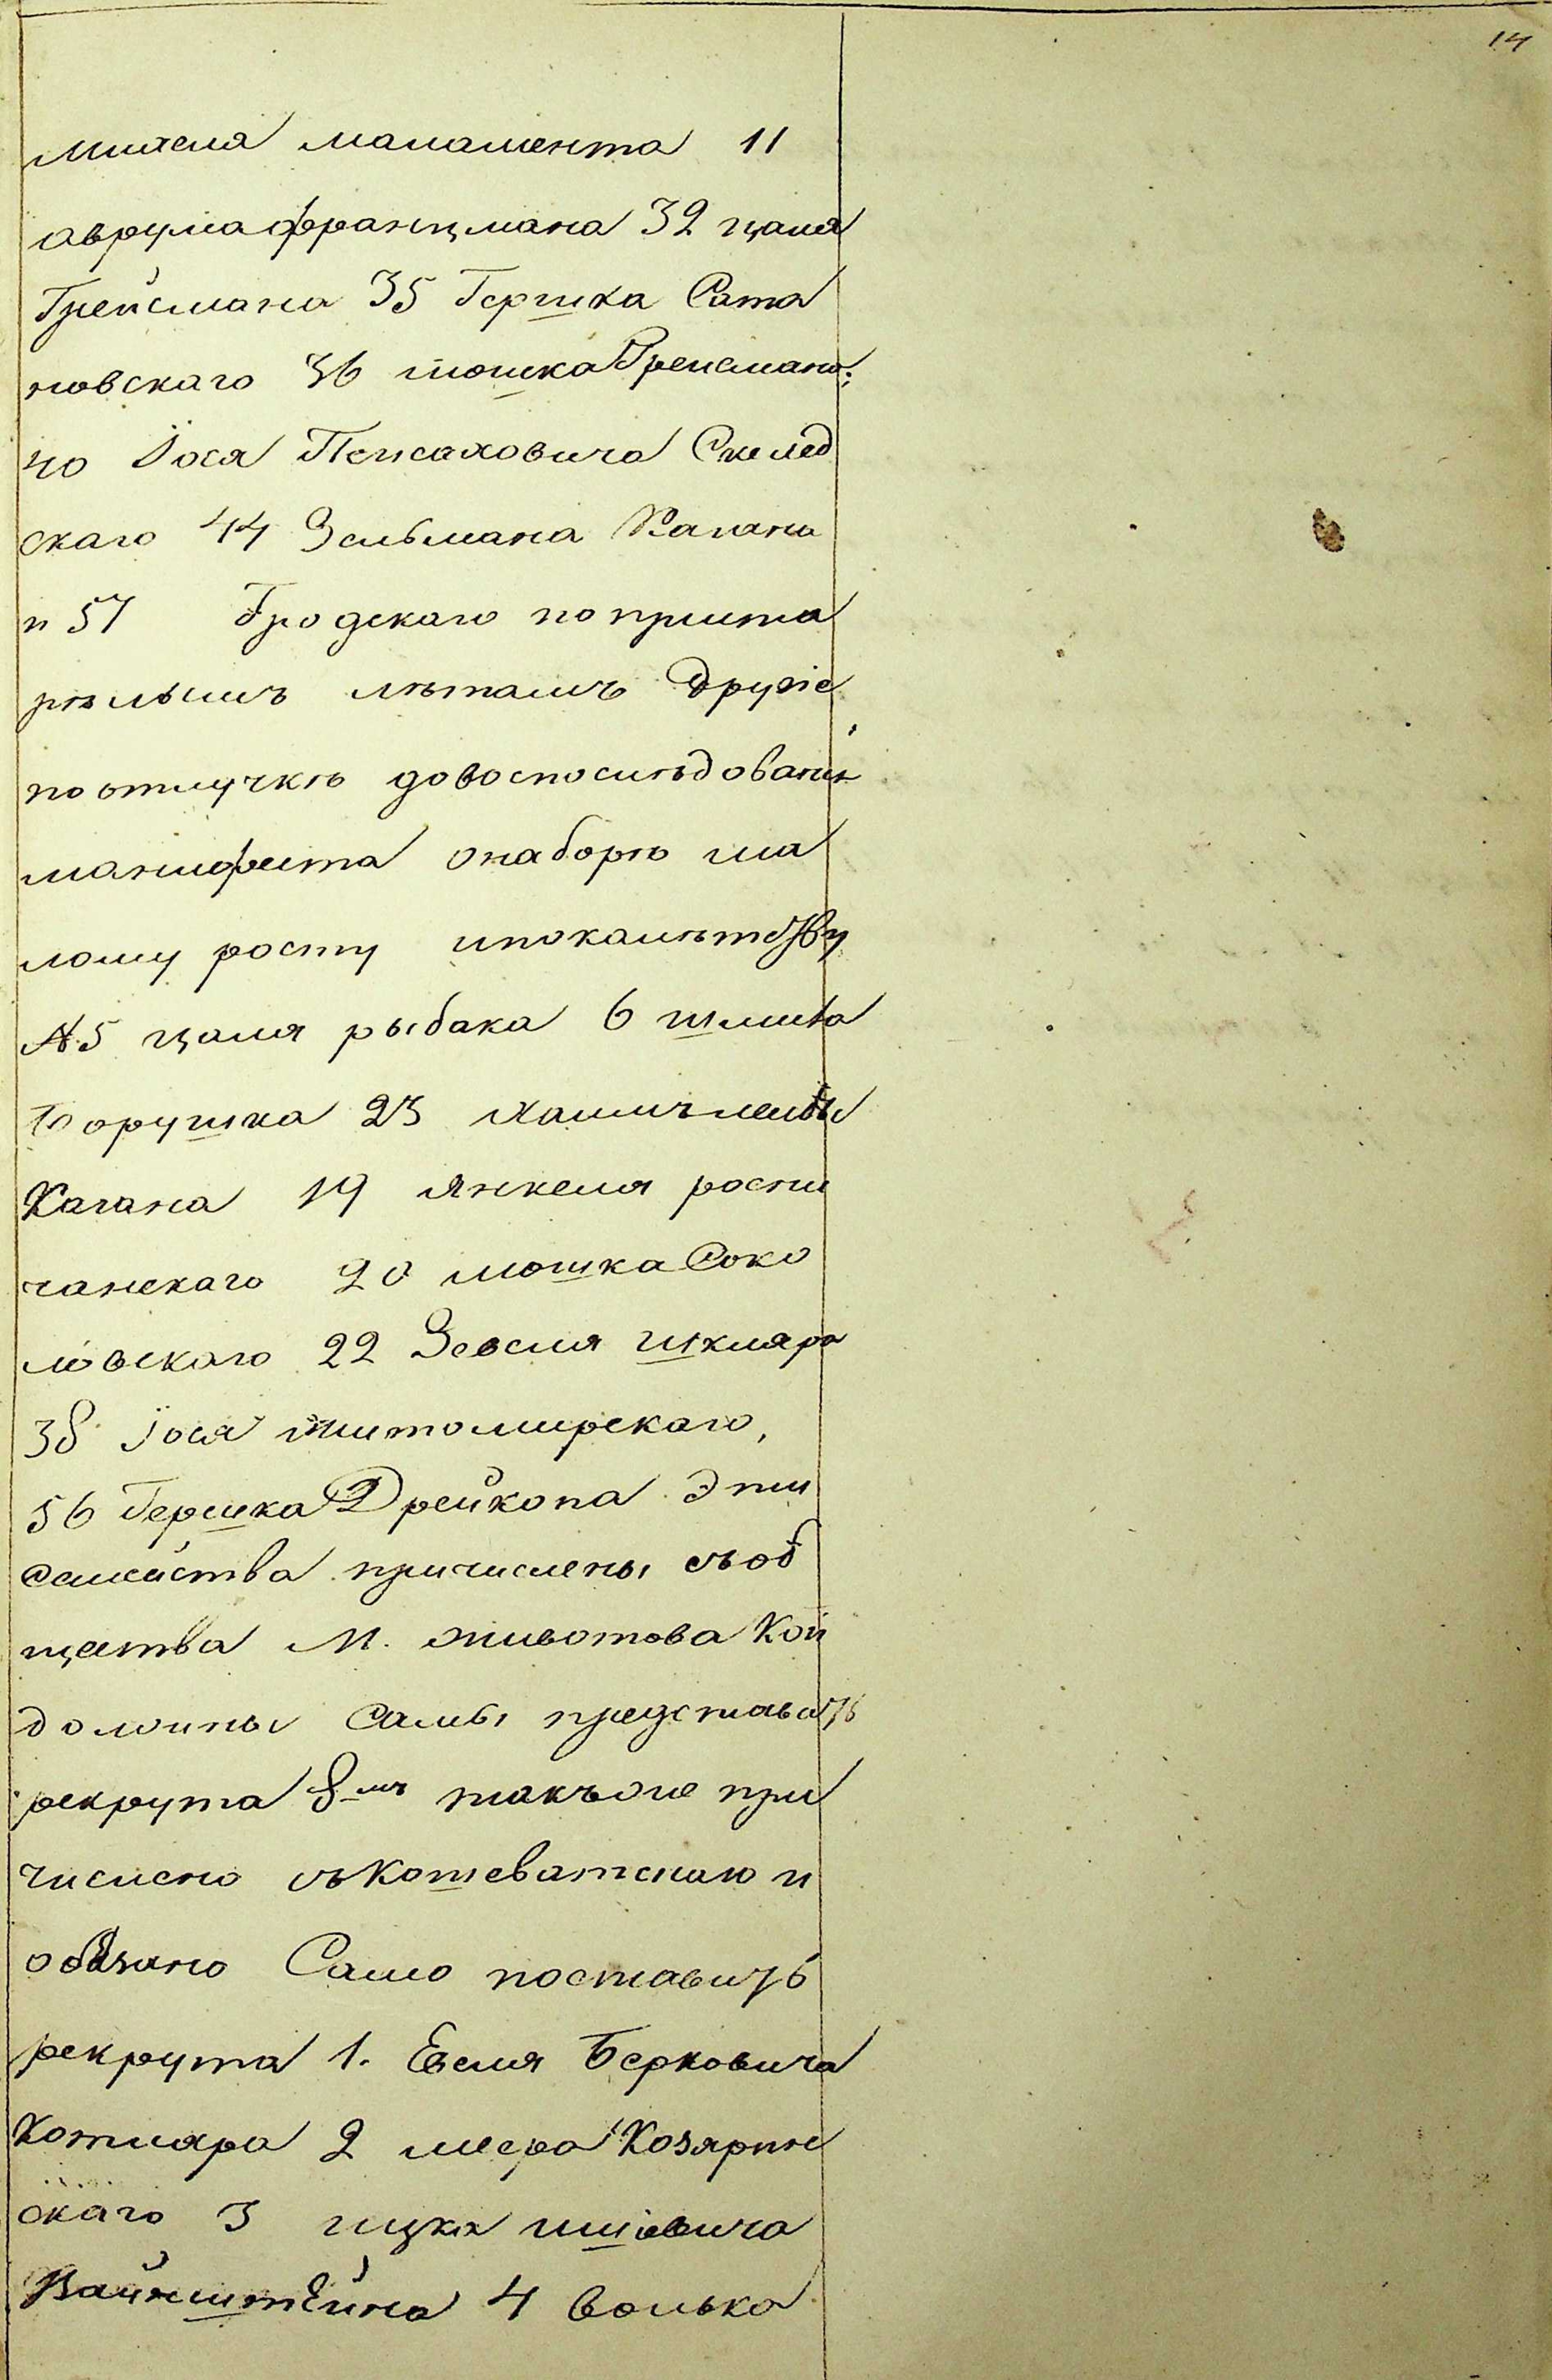 14
Михеля маламента 11
аврума францмана 32 цаля
Грейсмана 35 Гершка Сата
новскаго 36 мошка Грейсмана;
40 Йося Пейсаховича
скаго 44 Зельмана Кагана
и 57 Гродскаго по приста
рѣлымъ лѣтамъ другіе
по отлучкѣ до воспослѣдованія
манифеста о наборѣ ма
лому росту и по калѣтству
№5 цаля рыбака 6
Борушка 23
Кагана 19 Янкеля росни
чанскаго 20 мошка Соко
ловскаго 22 Зевеля шкляра
38 Йося житомирскаго,
56 Гершка Дрейкопа Эти
семейства причислены съ об
щества М. животова Кои
должны Сами представить
рекрута 8мъ такъже при
числено съ Кошеватскаго и
обязано Само поставить
рекрута 1. Евеля Берковича
Котляра 2 меера Козярин
скаго 3 ицка
Вайнштейна 4 волька